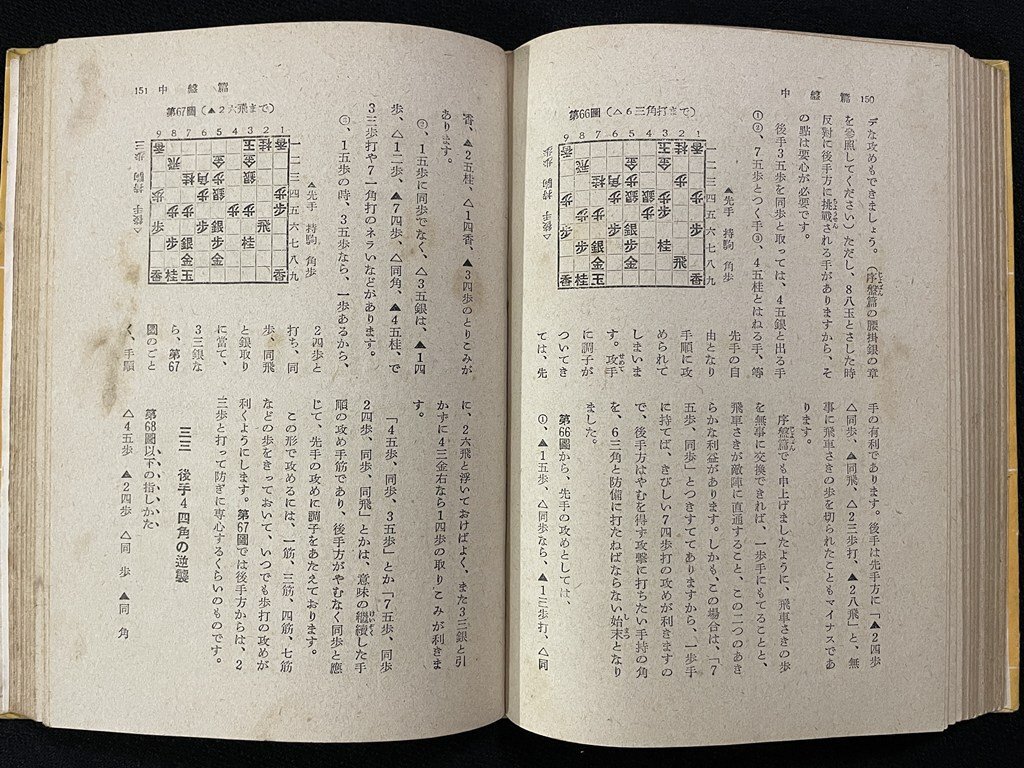 中盤篇 150
デな攻めもできましょう。(序盤篇の腰掛銀の章
を参照してください)ただし、8八玉とさした時
反對に後手方に挑戰される手がありますから、そ
の點は要心が必要です。
後手3五歩を同歩と取っては、4五銀と出る手
①②、7五歩とつく手③、4五桂とはねる手、等
第66圖(△6三角打まで)
9 8 7 6 5 4 3 2 1
一二三四五六七八九
▲先手 持駒 角歩
先手の自
由となり
手順に攻
められて
しまいま
す。攻手
に調子が
ついてき
ては、先
手の有利であります。後手は先手方に「▲2四歩
△同歩、▲同飛、△2三歩打、▲2八飛」と、無
事に飛車さきの歩を切られたこともマイナスであ
ります。
序盤篇でも申上げましたように、飛車さきの歩
を無事に交換できれば、一歩手にもてることと、
飛車さきが敵陣に直通すること、この二つのあき
らかな利益があります。しかも、この場合は、「7
五歩、同歩」とつきすててありますから、一歩手
に持てば、きびしい7四歩打の攻めが利きますの
で、後手方はやむを得ず攻擊に打ちたい手持の角
を、6三角と防備に打たねばならない始末となり
ました。
第66圖から、先手の攻めとしては、
①、▲1五歩、△同歩なら、▲1三歩打、△同
151 中盤篇
香、▲2五桂、△1四香、▲3四歩のとりこみが
あります。
②、1五歩に同歩でなく、△3五銀は、▲1四
歩、△1二歩、▲7四歩、△同角、▲4五桂、で
3三歩打や7一角打のネライなどがあります。
③、1五歩の時、3五歩なら、一歩あるから、
第67圖(▲2六飛まで)
9 8 7 6 5 4 3 2 1
一二三四五六七八九
▲先手 持駒 角歩
△後手 持駒 歩三
2四歩と
打ち、同
歩、同飛
と銀取り
に當て、
3三銀な
ら、第67
圖のごと
く、手順
に、2六飛と浮いておけばよく、また3三銀と引
かずに4三金右なら1四歩の取りこみが利きま
す。
「4五歩、同歩、3五歩」とか「7五歩、同歩
2四歩、同歩、同飛」とかは、意味の繼續した手
順の攻め手筋であり、後手方がやむなく同歩と應
じて、先手の攻めに調子をあたえております。
この形で攻めるには、一筋、三筋、四筋、七筋
などの歩をきっておいて、いつでも歩打の攻めが
利くようにします。第67圖では後手方からは、2
三歩と打って防ぎに專心するくらいのものです。
三三 後手4四角の逆襲
第68圖以下の指しかた、
△4五歩 ▲2四歩 △同 歩 ▲同 角